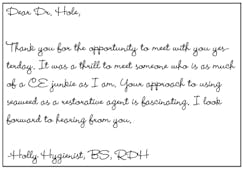 Dear Dr. Hole,
Thank you for the opportunity to meet with you yes-
terday. It was a thrill to meet someone who is as much
of a CE junkie as I am. Your approach to using
seaweed as a restorative agent is fascinating. I look
forward to hearing from you.
-Holly Hygienist, BS, RDH